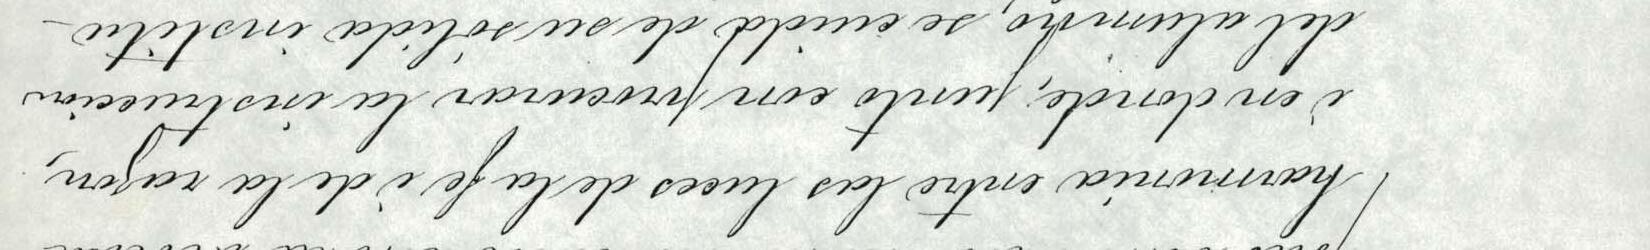 harmonía entre las luces de la fe i de la razon,
i en donde, junto con procurar la instruccion
del alumno, se cuida de su sólida institu-